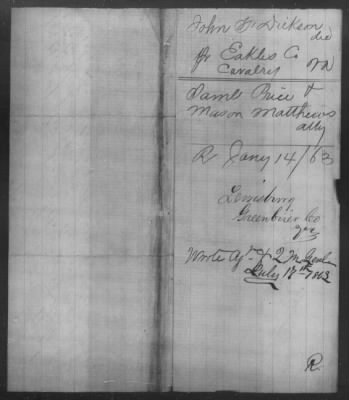 John F Dickson
dec
for Eakles Co
Cavalry Va
Saml Price &
Mason Matthews
atty
R Jany 14/63
Lewisburg
Greenbrier Co
Wrote
July 17th 1863
R